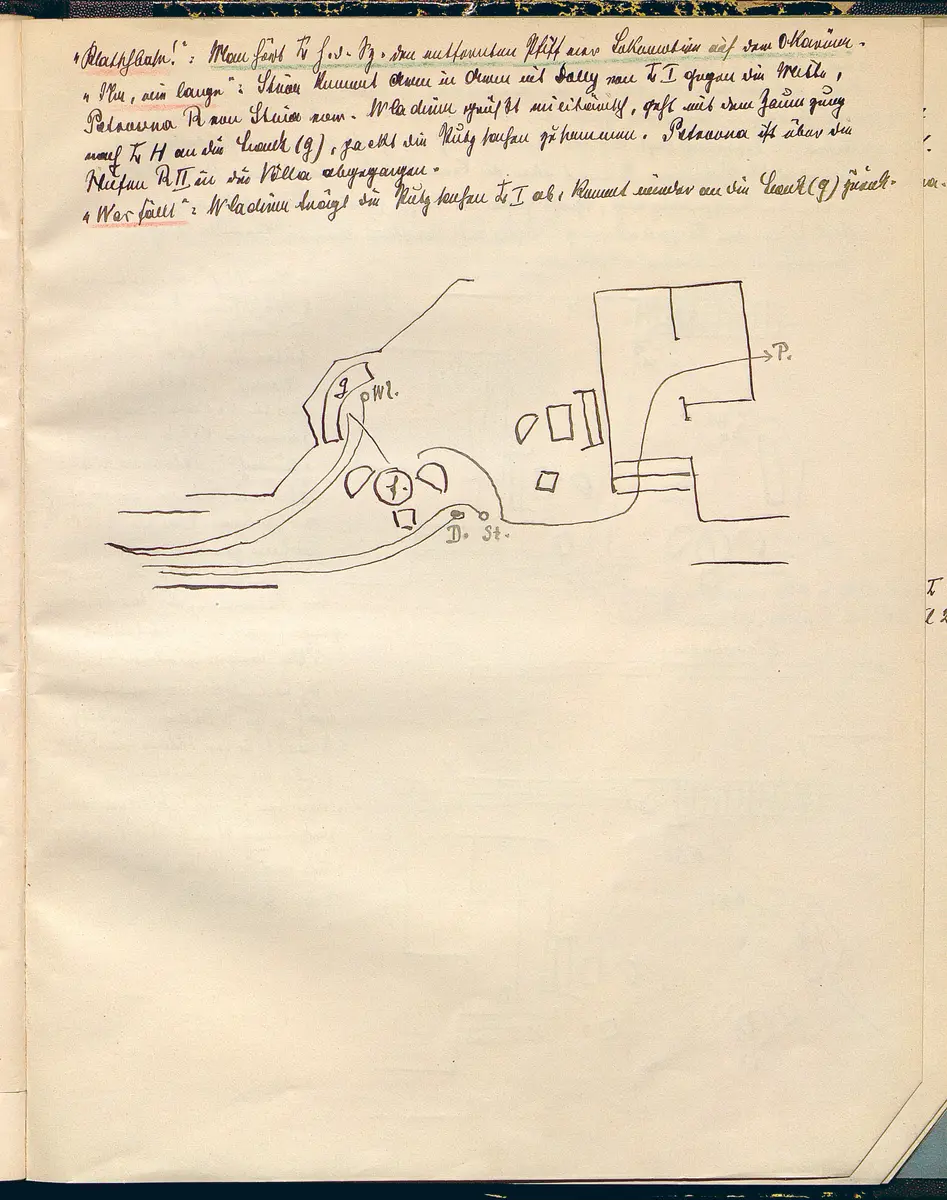 "Klatschbase!": Man hört L h. d. Sz. den entfernten Pfiff einer Lokomotive auf dem Okarina.
"Na, wie lange": Stasia kommt Arm in Arm mit Dolly von L I gegen die Mitte,
Petrowna R von Stasia vor. Wladimir grüßt militärisch, geht mit dem Zaumzeug
nach L H an die Bank (g), packt die Putzsachen zusammen. Petrowna ist über die
Stufen R II in die Villa abgegangen.
"Wer fällt": Wladimir trägt die Putzsachen L I ab, kommt wieder an die Bank (g) zurück.
g
Wl.
P.
f.
D. St.